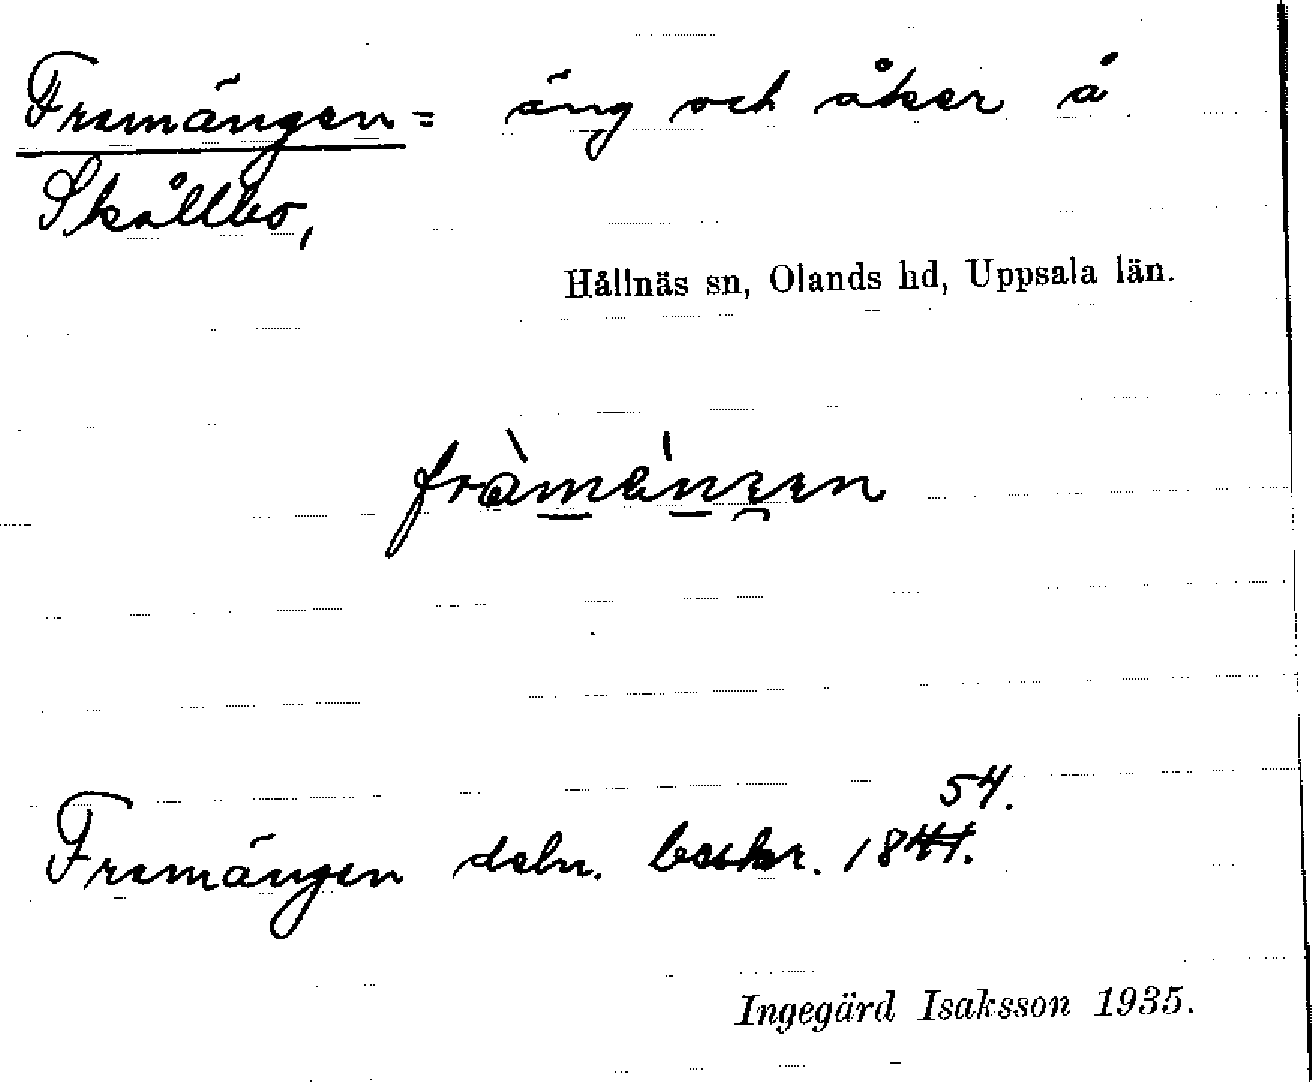 Framängen = äng och åker å
Skållbo,
Hållnäs sn, Olands hd, Uppsala län.
Framängen dslr. beskr. 1841. 54.
Ingegärd Isaksson 1935.